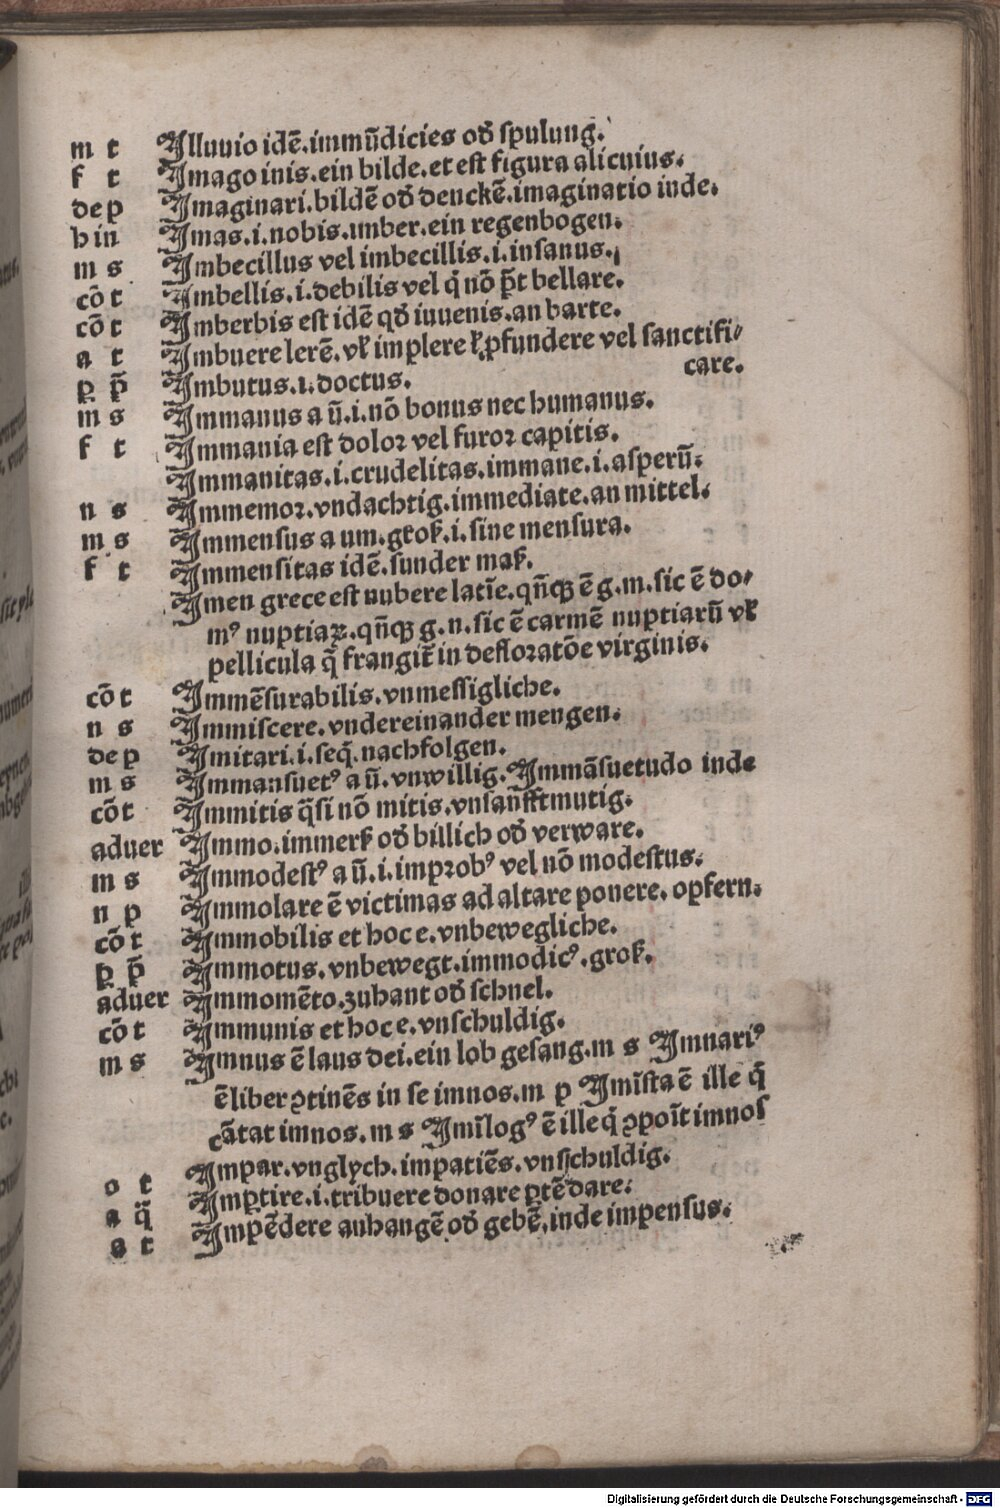 m t Illuuio idē.immūdicies od̄ spulung.
f t Imago inis.ein bilde.et est figura alicuius.
de p Imaginari.bildē od̄ denckē.imaginatio inde.
h in Imas.i.nobis.imber.ein regenbogen.
m s Imbecillus vel imbecillis.i.insanus.
cō t Imbellis.i.debilis vel q̄ nō p̄t bellare.
cō t Imberbis est idē qd̄ iuuenis.an barte.
a t Imbuere lerē.vł implere ł ꝓfundere vel sanctifi/
care.
p p̄ Imbutus.i.doctus.
m s Immanus a ū.i.nō bonus nec humanus.
f t Immania est dolor vel furor capitis.
Immanitas.i.crudelitas.immane.i.asperū.
n s Immemor.vndachtig.immediate.an mittel.
m s Immensus a um.groß.i.sine mensura.
f t Immensitas idē.sunder maß.
Imen grece est nubere latīe.qn̄qꝫ ē g.m.sic ē do/
mꝰ nuptiaꝝ.qn̄qꝫ g.n.sic ē carmē nuptiarū vł
pellicula q̄ frangit̄ in defloratōe virginis.
cō t Immēsurabilis.vnmessigliche.
n s Immiscere.vndereinander mengen.
de p Imitari.i.seq̄.nachfolgen.
m s Immansuetꝰ a ū.vnwillig.Immāsuetudo inde
cō t Immitis q̄si nō mitis.vnsan̄fftmutig.
aduer Immo.immerß od̄ billich od̄ verware.
m s Immodestꝰ a ū.i.improbꝰ vel nō modestus.
n p Immolare ē victimas ad altare ponere.opfern.
cō t Immobilis et hoc e.vnbewegliche.
p p̄ Immotus.vnbewegt.immodicꝰ.groß.
aduer Immomēto.zuhant od̄ schnel.
cō t Immunis et hoc e.vnschuldig.
m s Imnus ē laus dei.ein lob gesang.m s Imnariꝰ
ē liber ꝯtinēs in se imnos.m p Imīsta ē ille q̄
cātat imnos.m s Imīlogꝰ ē ille q̄ ꝯpoīt imnos
o t Impar.vnglych.impatiēs.vnschuldig.
a q̄ Imꝑtire.i.tribuere donare ꝑtē dare.
a t Impēdere anhangē od̄ gebē.inde impensus.
Digitalisierung gefördert durch die Deutsche Forschungsgemeinschaft - DFG